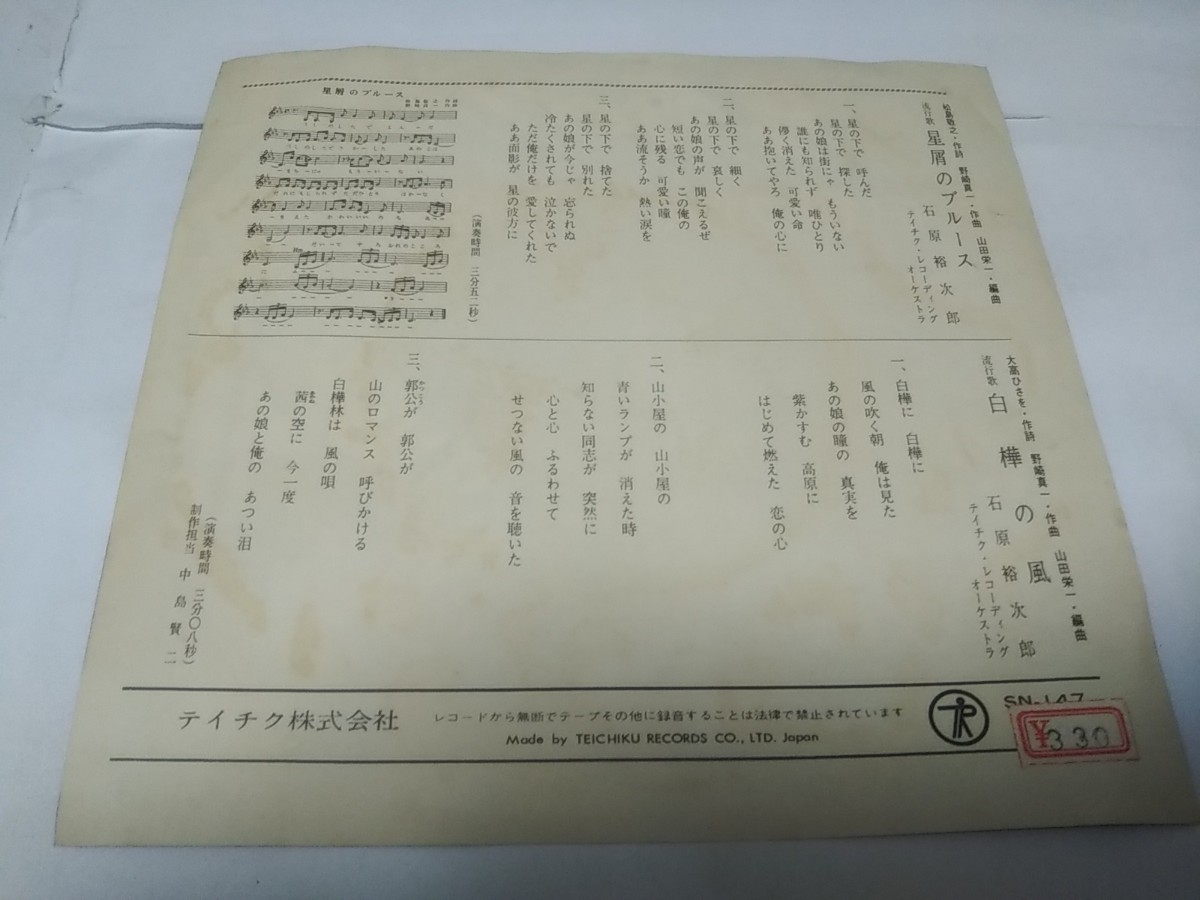 松島敬之・作詩 野崎真一・作曲 山田栄一・編曲
流行歌 星屑のブルース
石原裕次郎
テイチク・レコーディング
オーケストラ
一、星の下で 呼んだ
星の下で 探した
あの娘は街にゃ もういない
誰にも知られず 唯ひとり
儚く消えた 可愛い命
ああ抱いてやろ 俺の心に
二、星の下で 細く
星の下で 哀しく
あの娘の声が 聞こえるぜ
短い恋でも この俺の
心に残る 可愛い瞳
ああ流そうか 熱い涙を
三、星の下で 捨てた
星の下で 別れた
あの娘が今じゃ 忘られぬ
冷たくされても 泣かないで
ただ俺だけを 愛してくれた
ああ面影が 星の彼方に
(演奏時間 三分五二秒)
星屑のブルース
大高ひさを・作詩 野崎真一・作曲 山田栄一・編曲
流行歌 白樺の風
石原裕次郎
テイチク・レコーディング
オーケストラ
一、白樺に 白樺に
風の吹く朝 俺は見た
あの娘の瞳の 真実を
紫かすむ 高原に
はじめて燃えた 恋の心
二、山小屋の 山小屋の
青いランプが 消えた時
知らない同志が 突然に
心と心 ふるわせて
せつない風の 音を聴いた
三、郭公が 郭公が
かっこう
山のロマンス 呼びかける
白樺林は 風の唄
茜の空に 今一度
あかね
あの娘と俺の あつい泪
(演奏時間 三分〇八秒)
制作担当 中島賢二
テイチク株式会社
レコードから無断でテープその他に録音することは法律で禁止されています
Made by TEICHIKU RECORDS CO., LTD. Japan
SN-147
¥330